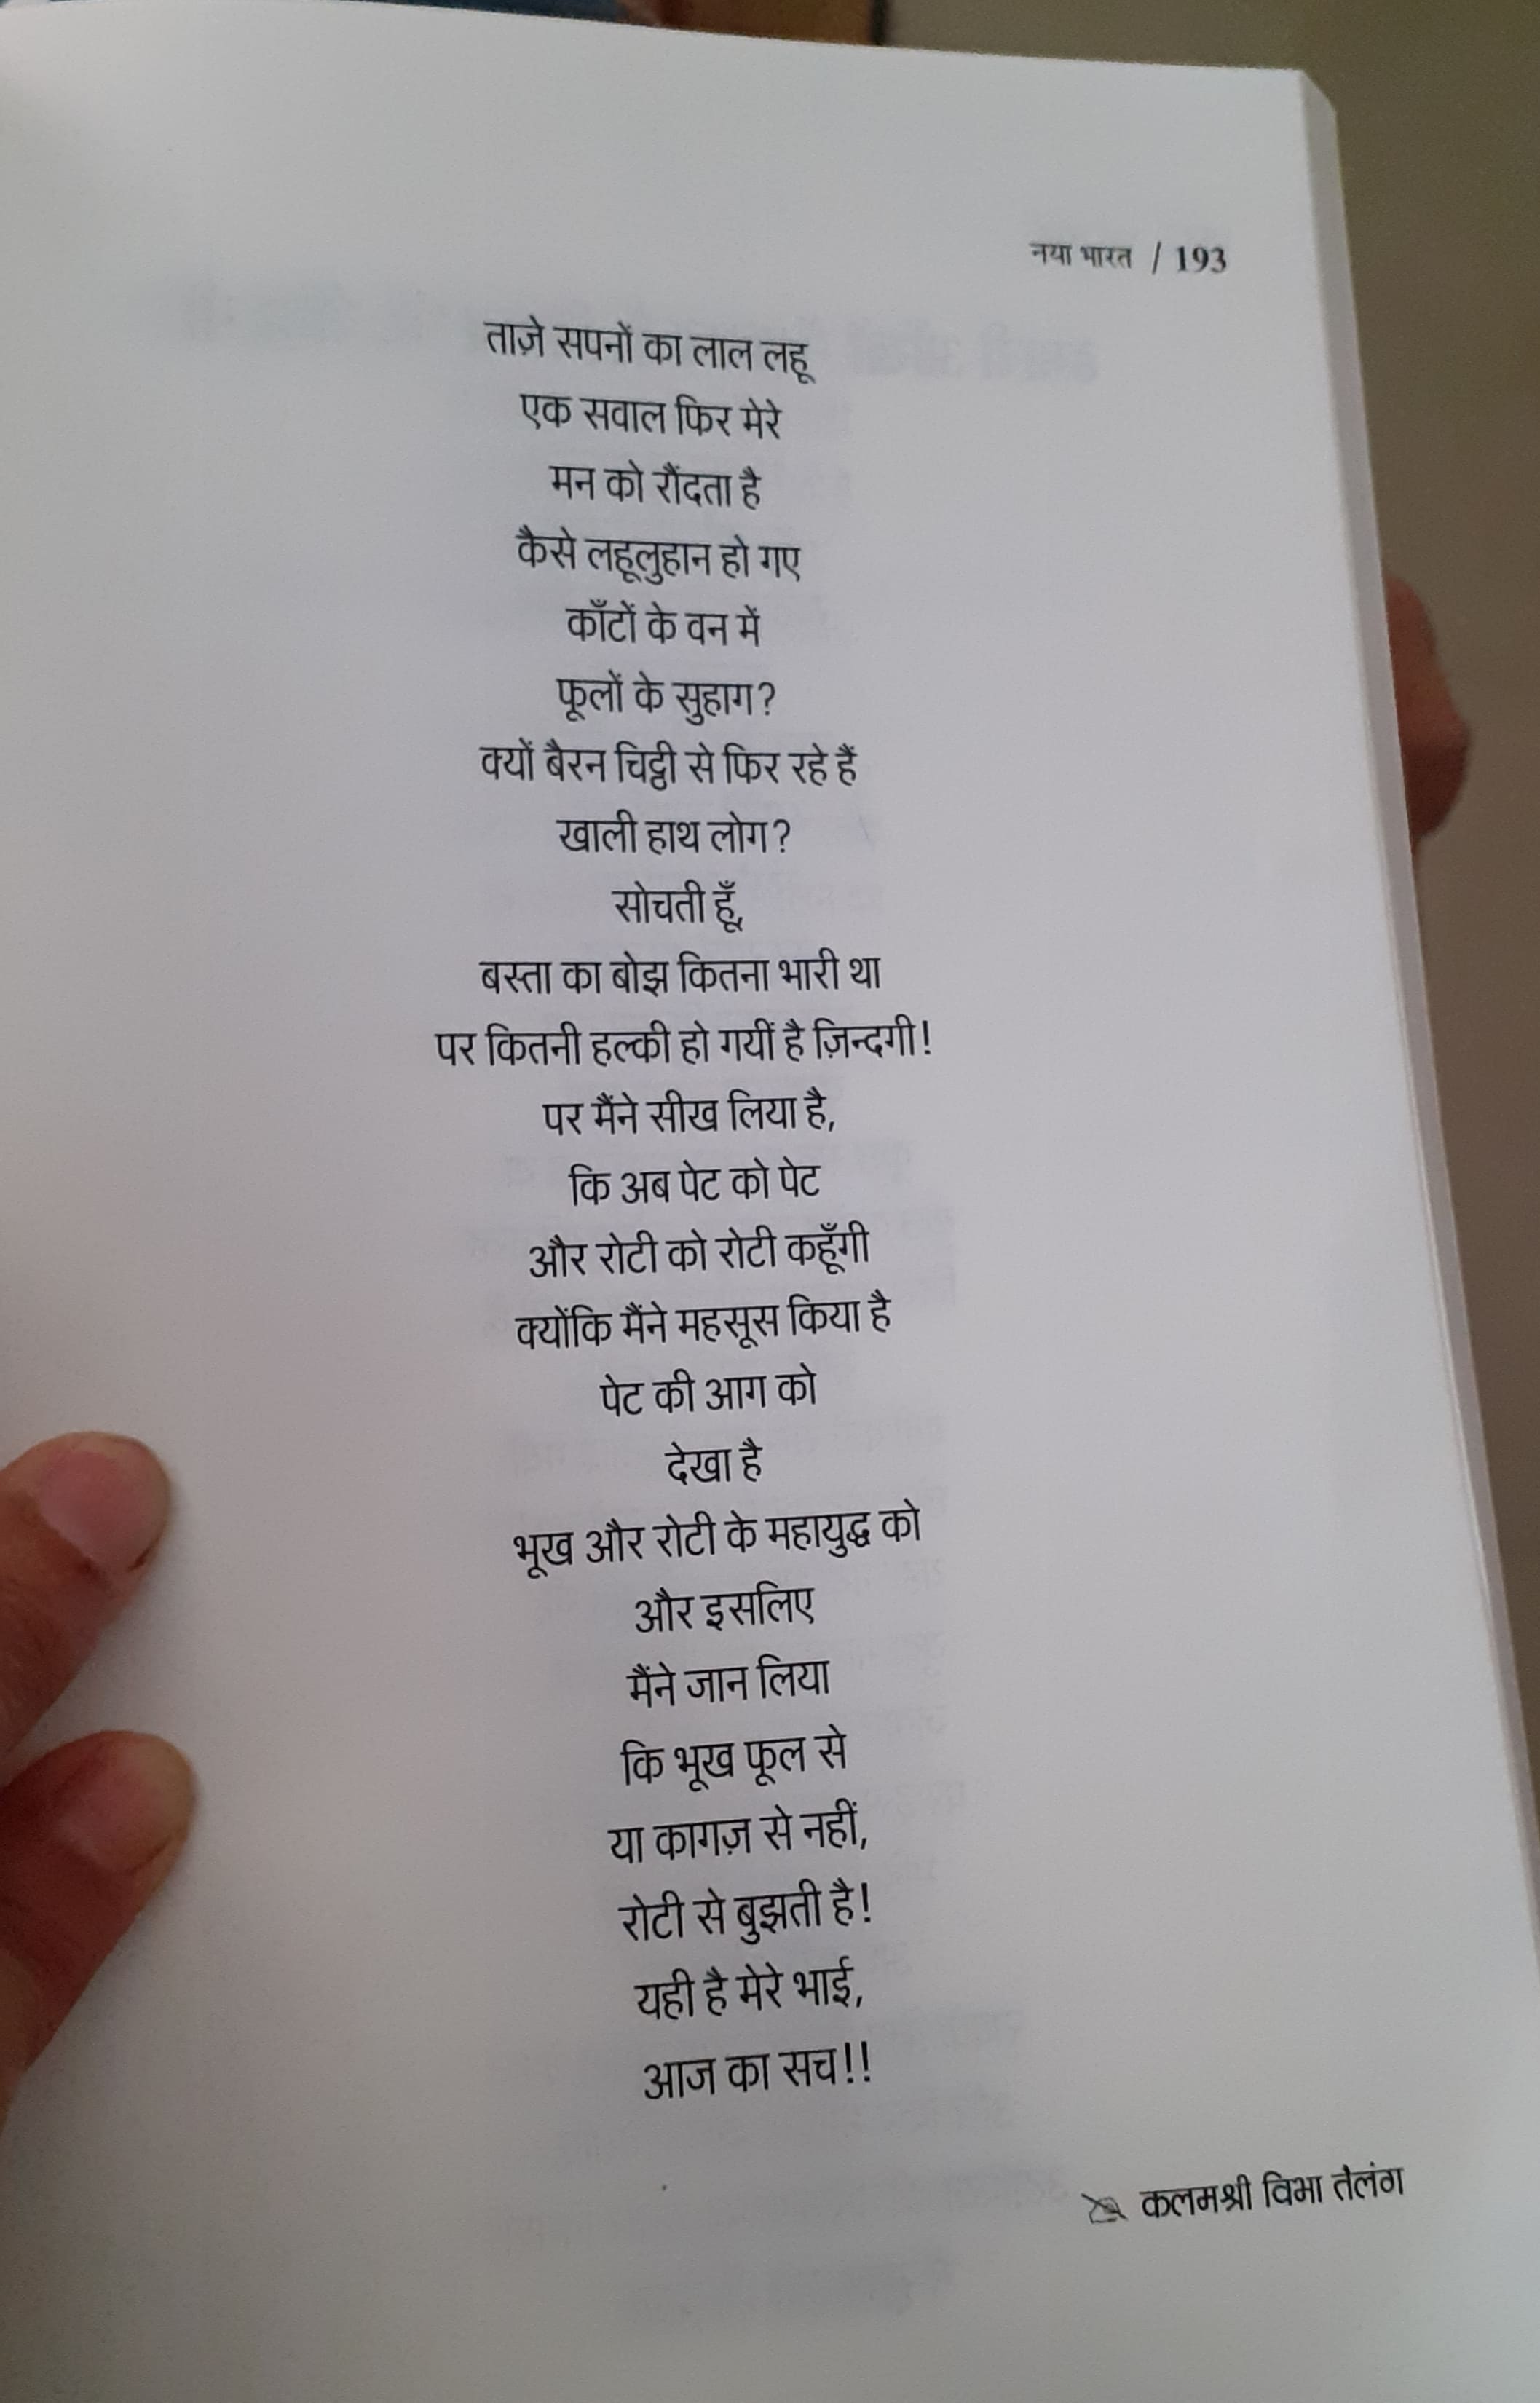 नया भारत / 193
ताज़े सपनों का लाल लहू
एक सवाल फिर मेरे
मन को रौंदता है
कैसे लहूलुहान हो गए
काँटों के वन में
फूलों के सुहाग?
क्यों बैरन चिट्ठी से फिर रहे हैं
खाली हाथ लोग?
सोचती हूँ,
बस्ता का बोझ कितना भारी था
पर कितनी हल्की हो गयीं है ज़िन्दगी!
पर मैंने सीख लिया है,
कि अब पेट को पेट
और रोटी को रोटी कहूँगी
क्योंकि मैंने महसूस किया है
पेट की आग को
देखा है
भूख और रोटी के महायुद्ध को
और इसलिए
मैंने जान लिया
कि भूख फूल से
या कागज़ से नहीं,
रोटी से बुझती है!
यही है मेरे भाई,
आज का सच!!
कलमश्री विभा तैलंग